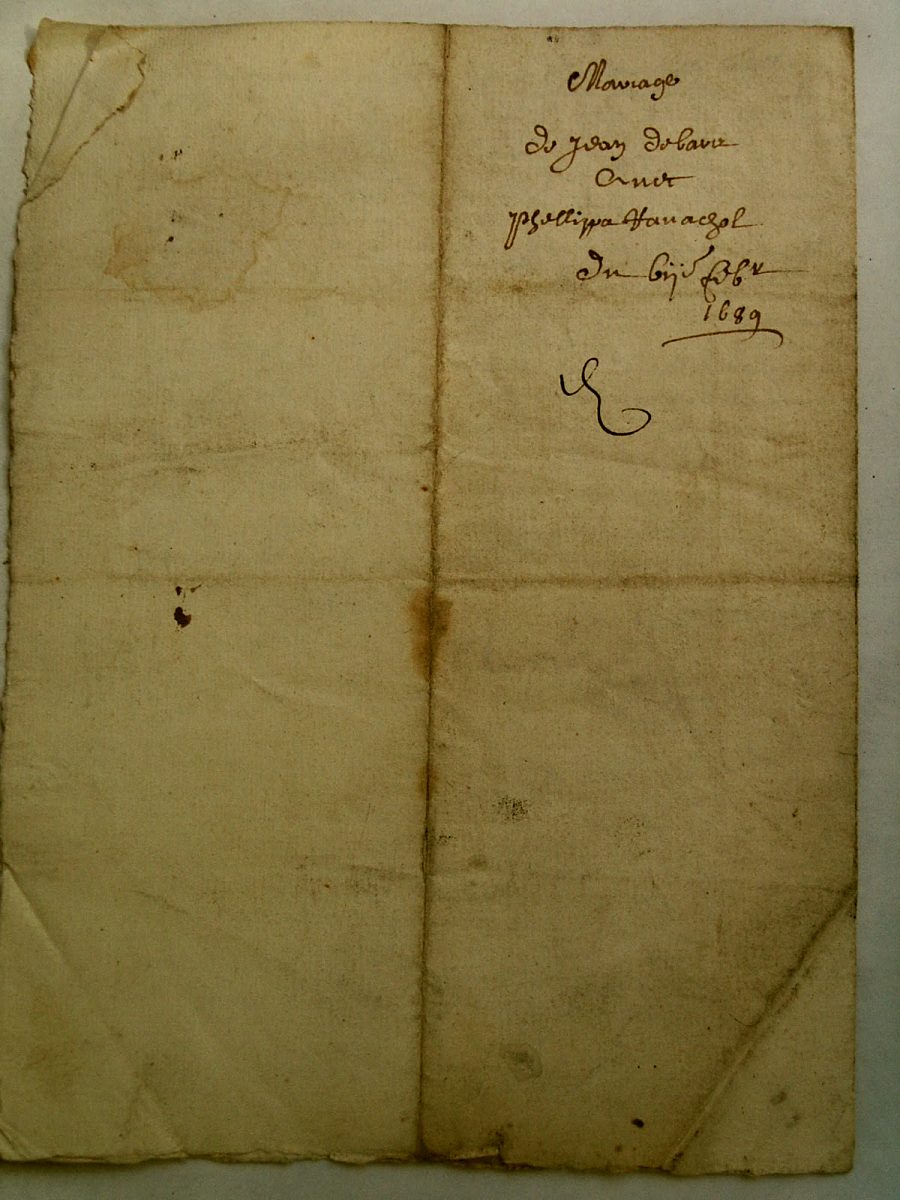 Mariage
de Jean debare
Avec
Phellippa Ravachol
du bije febr
1689